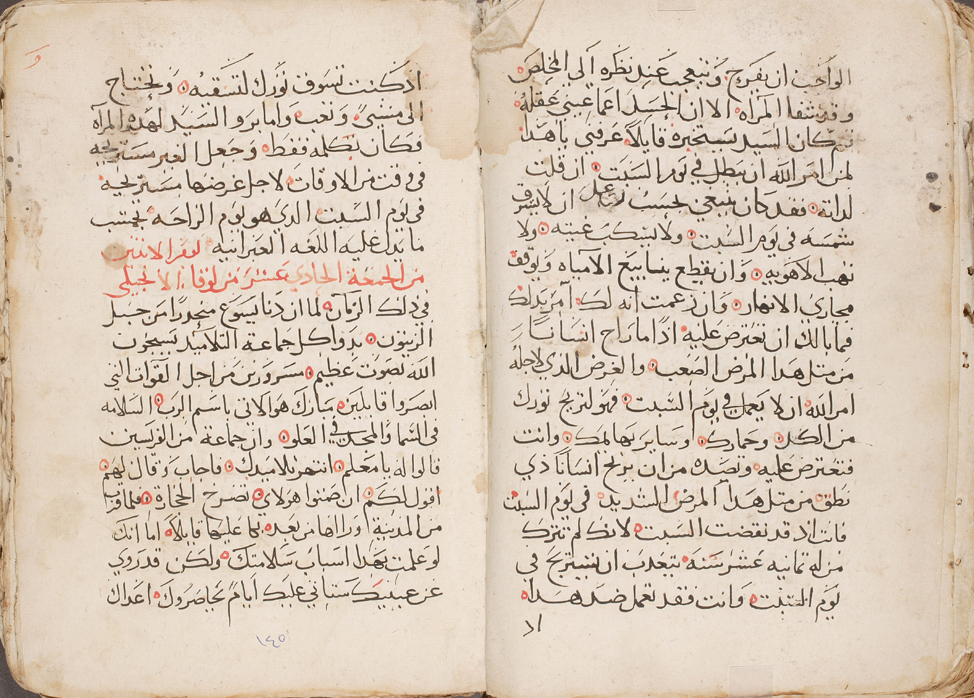 الواجب ان يفرح وتتعجب عند نظره الي المخلص
وقد شفا المراه الا ان الحسد اعما عيني عقله
ثم كان السيد تستخبره قايلاً عرفني يا هدا
لمن امر الله ان يبطل في يوم السبت ان قلت
لداته فقد كان ينبغي بحسب ان لا تشرق
شمسه في يوم السبت ولا ينسكب غيته ولا
تهب الاهويه وان يقطع ينابيع الامياه ويوقف
مجاري الانهار وان زعمت انه لك امر بدلك
فما بالك ان تعترض عليه اداما راح انسانا
من متل هدا المرض الصعب والغرض الدي لاجله
امر الله ان لا يعمل في يوم السبت فهو لتريح تورك
من الكل وحمارك وساير بهايمك وانت
فتعترض عليه وتصده من ان يريح انسانا دي
نطق من متل هدا المرض الشديد في يوم السبت
فانت اد قد نقضت السبت لانك لم تترك
من له تمانيه عشر سنه يتعدب ان يستريح في
يوم السبت وانت فقد تعمل ضد هدا
اد
اد كنت تسوق تورك لتسقيه وتحتاج
الى مشيئ وتعب واما برو السيد لهده المراه
فكان بكلمه فقط وجعل الغير مستريحه
في وقت من الاوقات لاجل غرضها مستريحه
في يوم السبت الدي هو يوم الراحه بحسب
ما يدل عليه اللغه العبرانيه يوم الاتنين
من الجمعه الحادي عشر من لوقا الانجيلي
في دلك الزمان لما ان دنا يسوع منحدرا من جبل
الزيتون بدو اكل جماعة التلاميد يسبحون
الله بصوت عظيم مسرورين من اجل القوات التي
ابصروا قايلين مبارك هو الاتي باسم الرب السلامه
في السما والمجد في العلو وان جماعة من الفريسين
قالوا له يا معلم انتهر تلاميدك فاجاب وقال لهم
اقول لكم ان صمتوا هولاي تصرخ الحجارة فلما قرب
من المدينة وراها من بعد بكا عليها قايلاً اما انك
لو علمت بهدا اسباب سلامتك ولكن قد زوي
عن عينيك ستاتي عليك ايام يحاصروك اعداك
١٤٥